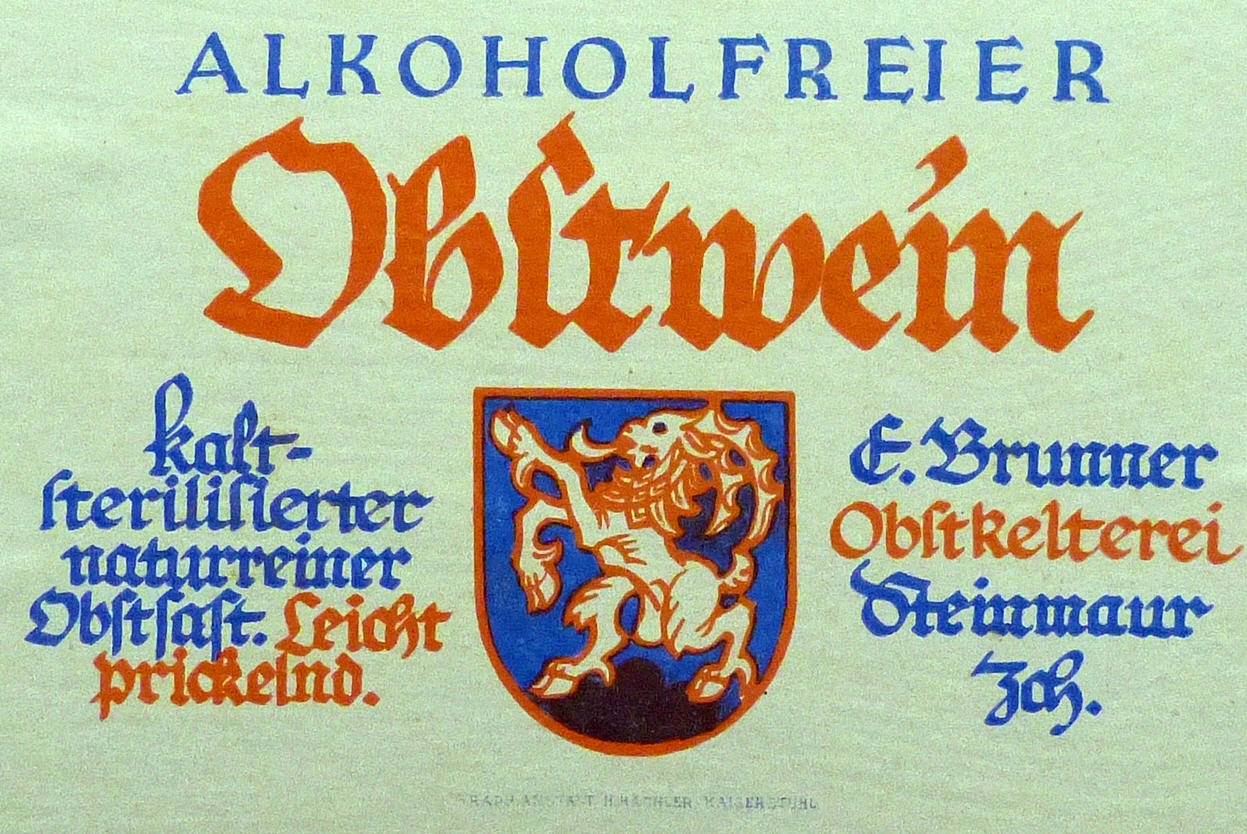 ALKOHOLFREIER
Obſtwein
kalt-
ſteriliſierter
naturreiner
Obſtſaft. Leicht
prickelnd.
E. Brunner
Obſtkelterei
Steinmaur
Zch.
GRAPH. ANSTALT H. KAISERSTUHL